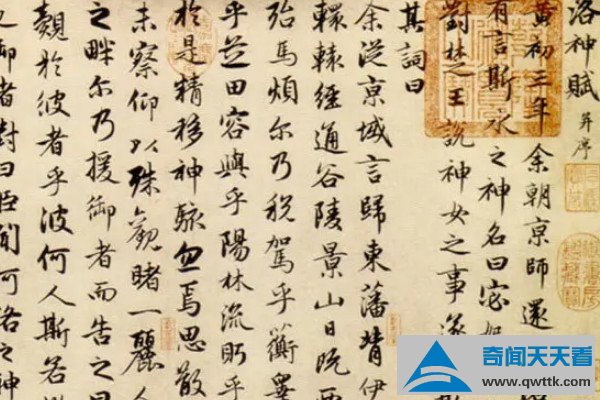 洛神賦 并序
黄初三年余朝京師還
有言斯水之神名曰宓妃
對楚王說神女之事遂
其詞曰
余從京域言歸東藩背伊
轘轅經通谷陵景山日既西
殆馬煩尔乃税駕乎蘅皋
乎芝田容與乎陽林流眄乎
於是精移神駭忽焉思散
未察仰以殊觀睹一麗人
之畔尔乃援御者而告之曰
覿於彼者乎彼何人斯若
御者對曰臣聞河洛之神
奇闻天天看
www.qwttk.com